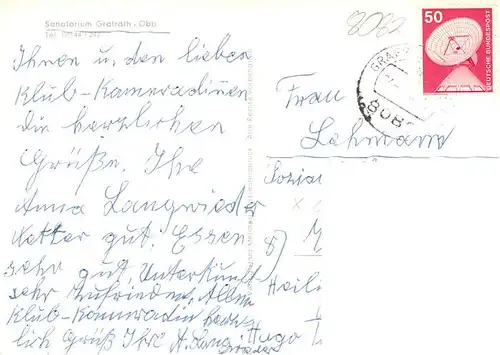 Sanatorium Grafrath · Obb
Tel. 08144 / 292
8082
50
DEUTSCHE BUNDESPOST
GRAFR
808
Ihnen u. den lieben
Klub-Kameradinen
die herzlichen
Grüße. Ihre
Anna Langwieder
Wetter gut. Essen
sehr gut Unterkunft
sehr Zufrieden, Allen
Klub-Kameradin herz
lich Grüß Ihre A. Lang
wieder
Frau
Lehmann
Sozia
8) M
Heil
Hugo